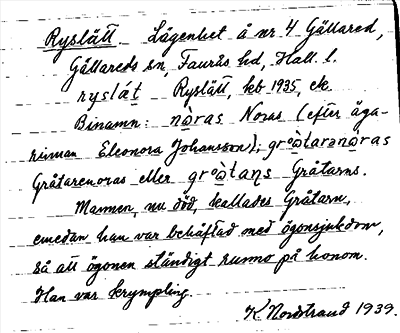 Ryslätt. Lägenhet å nr 4 Gällared,
Gällareds sn, Faurås hd, Hall. l.
ryslat Ryslätt, kb 1935, ek.
Binamn: nòras Noras (efter äga-
rinnan Eleonora Johansson); grotarənòras
Gråtarenoras eller gròtaṇs Gråtarns.
Mannen, nu död, kallades Gråtarn,
emedan han var behäftad med ögonsjukdom,
så att ögonen ständigt runno på honom.
Han var krympling.
K Nordstrand 1939.